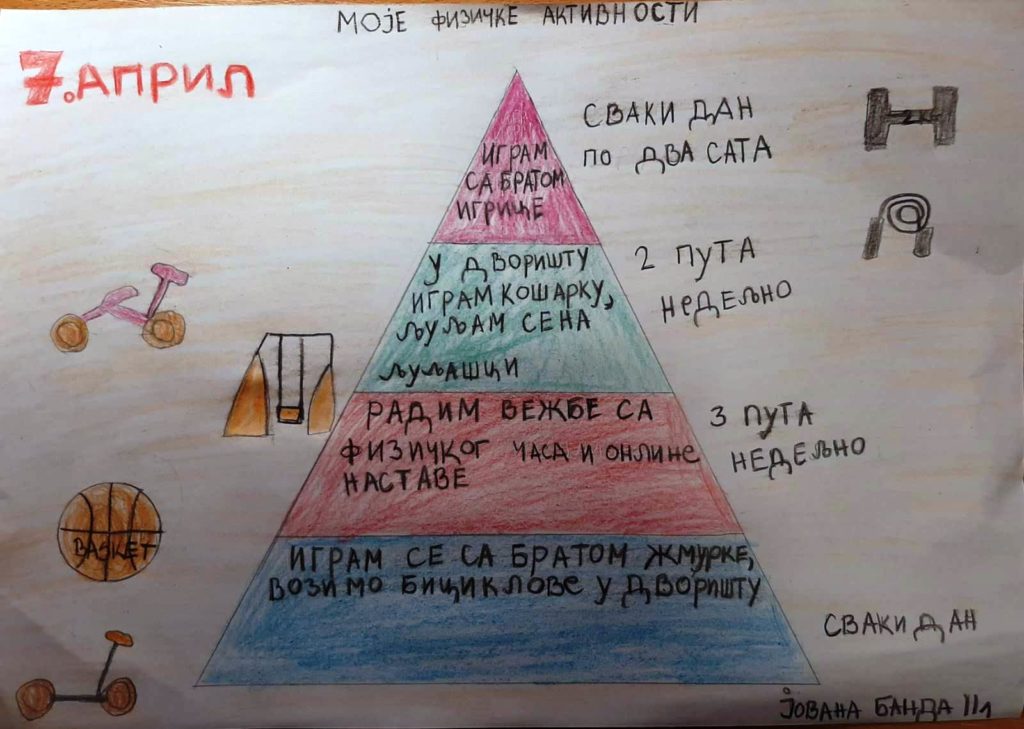 МОЈЕ ФИЗИЧКЕ АКТИВНОСТИ
7. АПРИЛ
ИГРАМ
СА БРАТОМ
ИГРИЦЕ
СВАКИ ДАН
ПО ДВА САТА
2К
У ДВОРИШТУ
ИГРАМ КОШАРКУ,
ЉУЉАМ СЕНА
ЉУЉАШЦИ
2 ПУТА
НЕДЕЉНО
РАДИМ ВЕЖБЕ СА
ФИЗИЧКОГ ЧАСА И ОНЛИНЕ
НАСТАВЕ
3 ПУТА
НЕДЕЉНО
BASKET
ИГРАМ СЕ СА БРАТОМ ЖМУРКЕ,
ВОЗИМО БИЦИКЛОВЕ У ДВОРИШТУ
СВАКИ ДАН
ЈОВАНА БАНДА II1